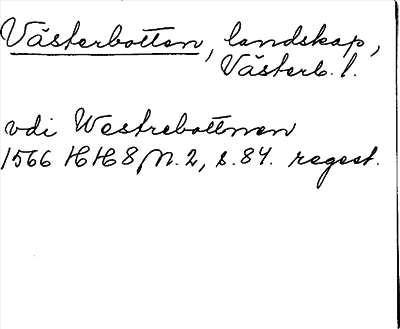 Västerbotten, landskap,
Västerb. l.
vdi Westrebottnen
1566 HH 8, N. 2, s. 84. regest.